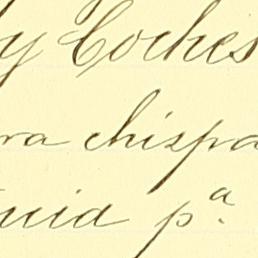 y Coches
ra chispa
uid pª